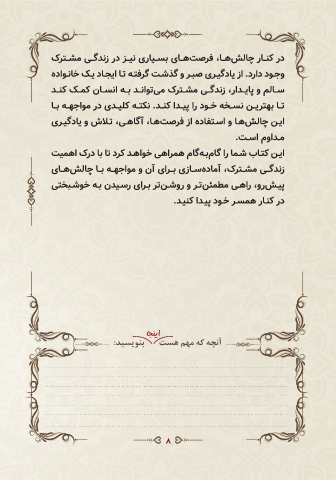 در کنار چالش‌ها، فرصت‌های بسیاری نیز در زندگی مشترک
وجود دارد. از یادگیری صبر و گذشت گرفته تا ایجاد یک خانواده
سالم و پایدار، زندگی مشترک می‌تواند به انسان کمک کند
تا بهترین نسخه خود را پیدا کند. نکته کلیدی در مواجهه با
این چالش‌ها و استفاده از فرصت‌ها، آگاهی، تلاش و یادگیری
مداوم است.
این کتاب شما را گام‌به‌گام همراهی خواهد کرد تا با درک اهمیت
زندگی مشترک، آماده‌سازی برای آن و مواجهه با چالش‌های
پیش‌رو، راهی مطمئن‌تر و روشن‌تر برای رسیدن به خوشبختی
در کنار همسر خود پیدا کنید.
آنچه که مهم هست اینجا بنویسید:
۸